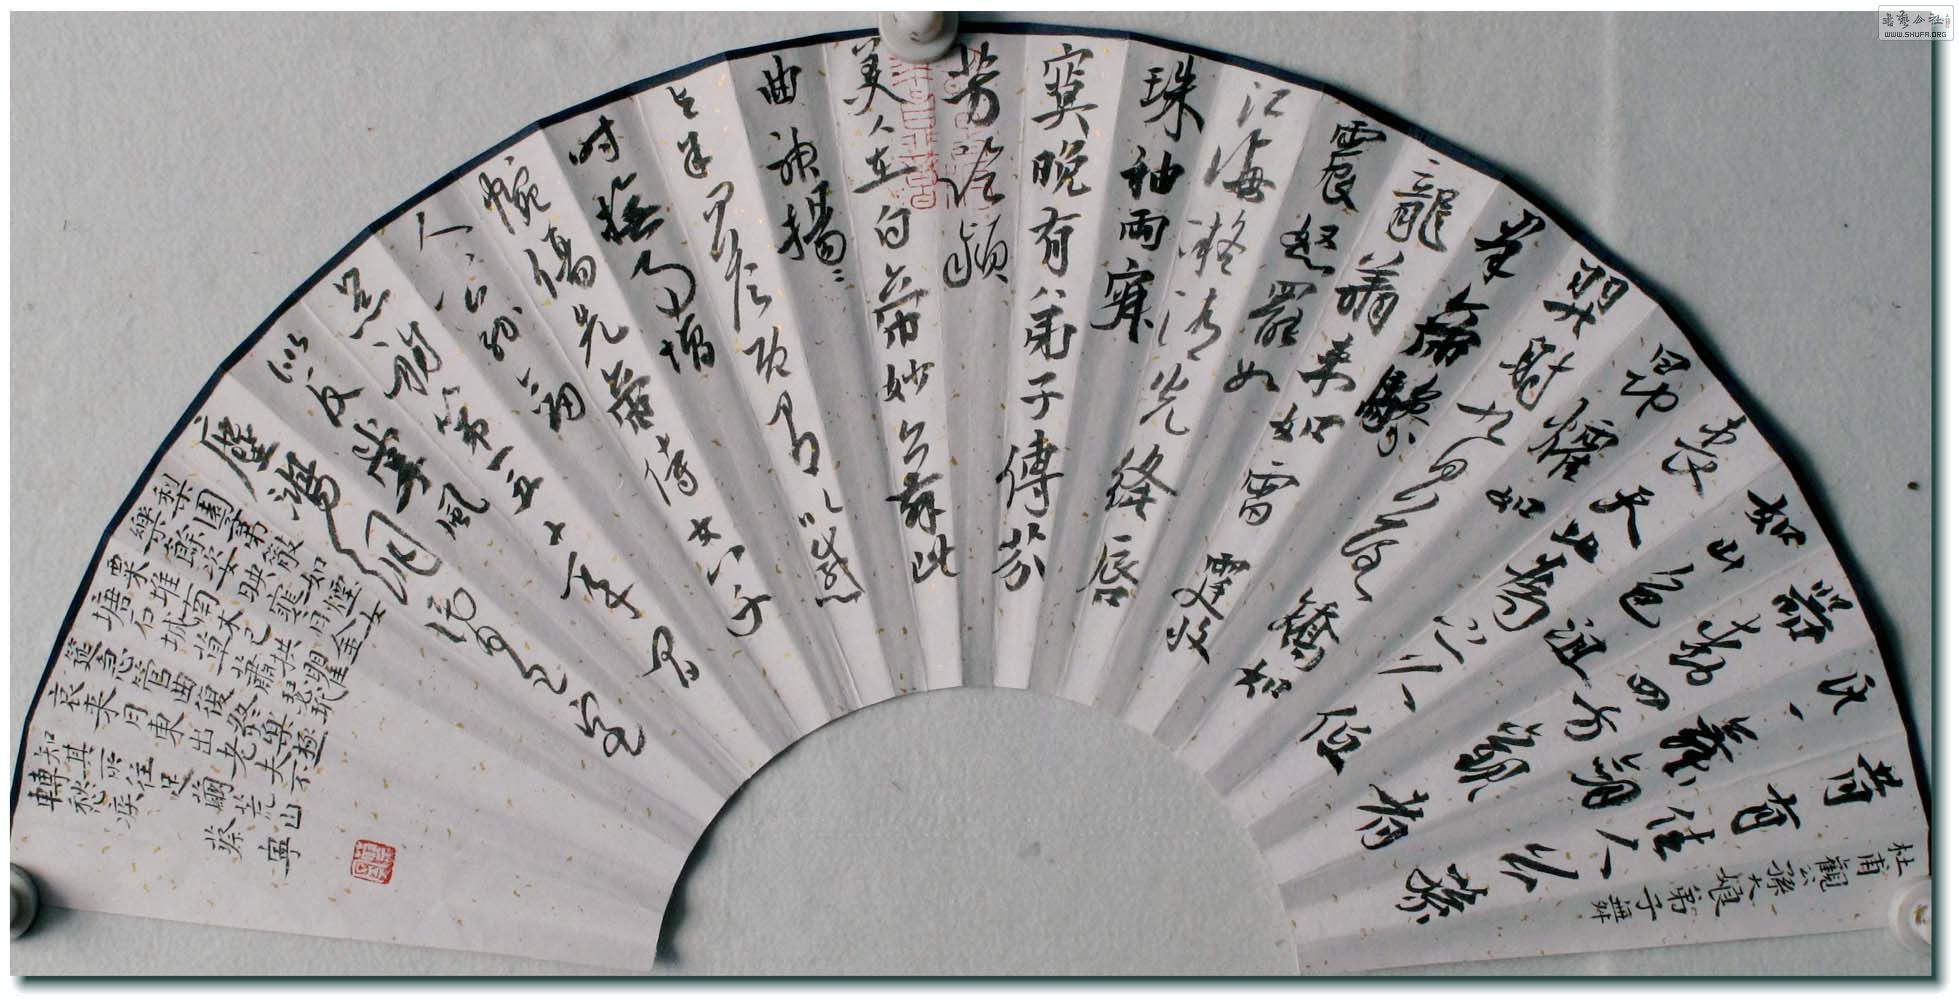 杜甫觀公孫大娘弟子舞
昔有佳人公孫
氏一舞劍
器動四方觀者
如山色沮
喪天地為之久低
昂㸌如
羿射九日落矯如
群帝驂
龍翔來如雷霆收
震怒罷如
江海凝清光絳唇
珠袖兩寂
寞晚有弟子傳芬
芳臨潁
美人在白帝妙舞此
曲神揚揚
與余問答既有以感
時撫事增
惋傷先帝侍女八千
人公孫劍
器初第一五十年間
似反掌風
塵澒洞昏王室
梨園弟子散如煙女
樂餘姿映寒日金
粟堆南木已拱瞿
塘石城草蕭瑟玳
筵急管曲復終樂極
哀來月東出老夫不
知其所往足繭荒山
轉愁疾 蔡寧
WWW.SHUFA.ORG